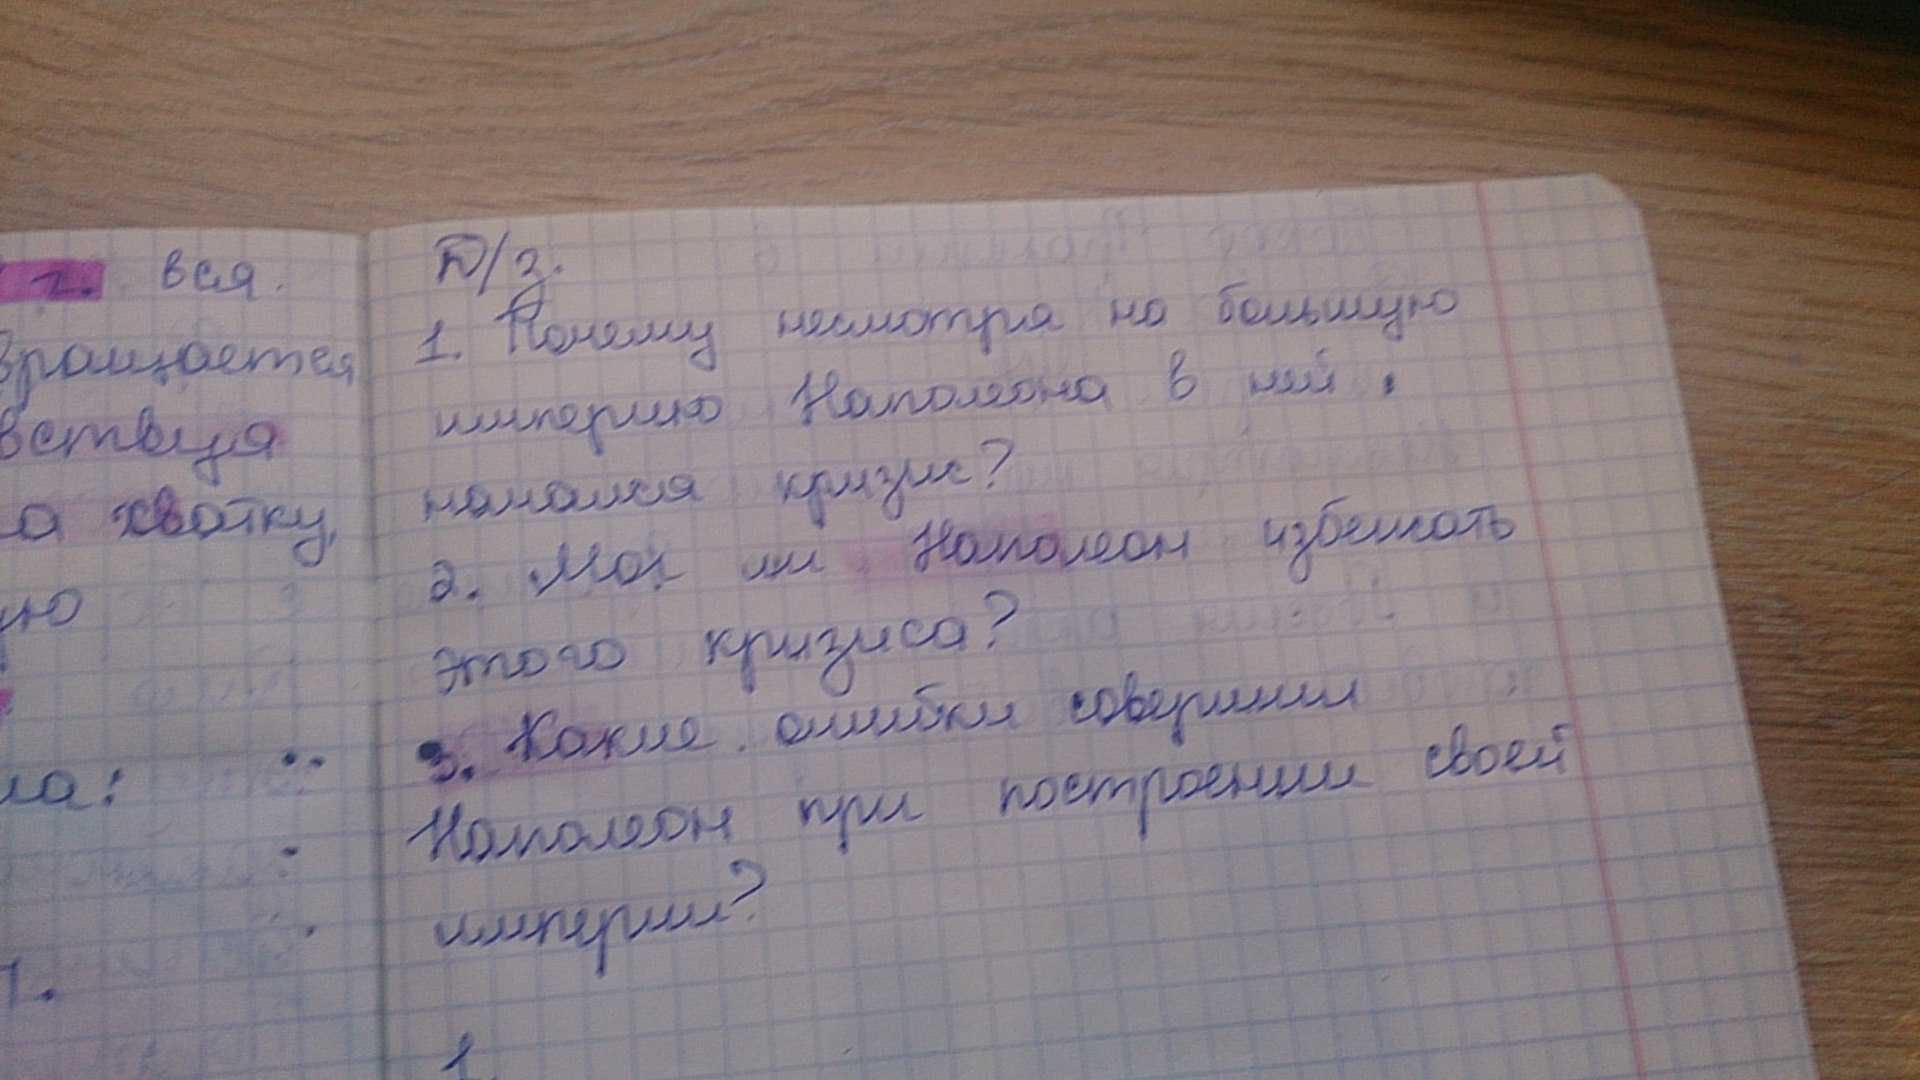 г. вся
вращается
вствуя
а хватку,
ую
ла:
1.
Д/з.
1. Почему несмотря на большую
империю Наполеона в ней
начался кризис?
2. Мог ли Наполеон избежать
этого кризиса?
3. Какие ошибки совершил
Наполеон при построении своей
империи?
1.